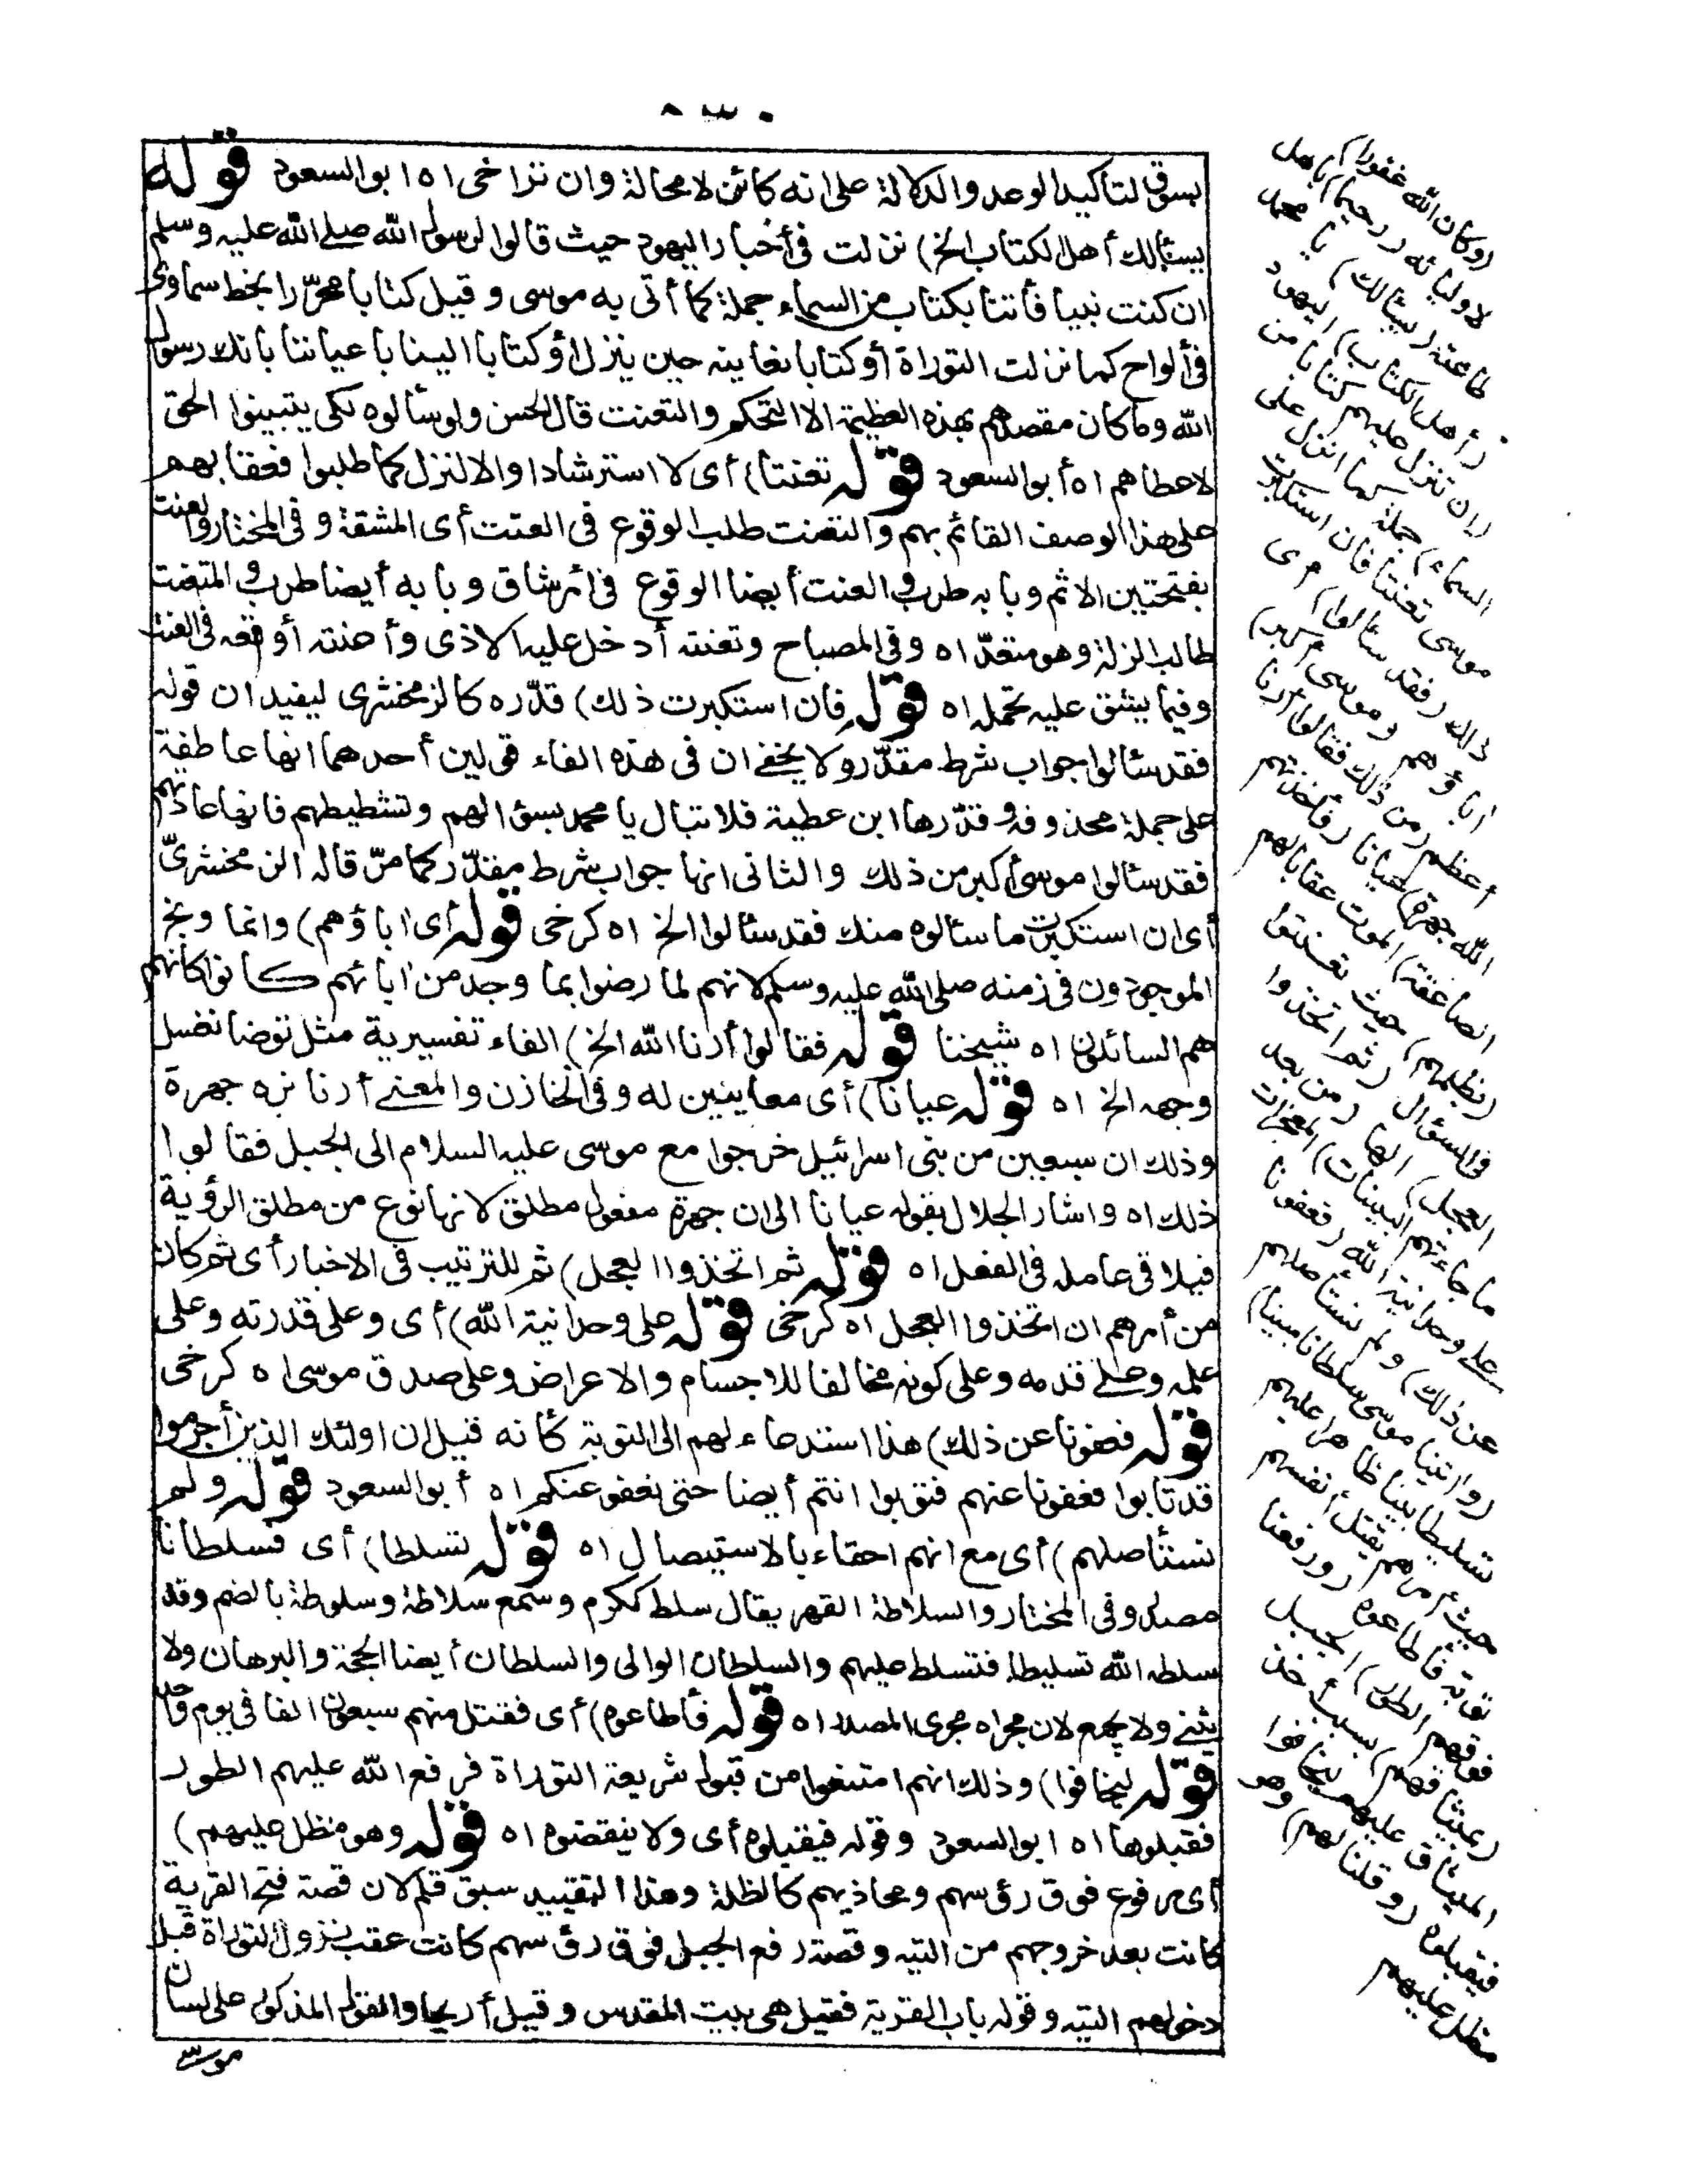 ٨٣٠
بسوق لتأكيد الوعد والدلالة على انه كائن لا محالة وان تراخى اه ابو السعود قوله
يسئالك أهل الكتاب الخ) نزلت فى أخبار اليهود حيث قالوا لرسول الله صلى الله عليه وسلم
ان كنت نبيا فأتنا بكتاب من السماء جملة كما أتى به موسى وقيل كتابا محررا بخط سماوى
فى ألواح كما نزلت التوراة أو كتابا نعاينه حين ينزل أو كتابا الينا باعياننا بانك رسول
الله وما كان مقصدهم بهذه العظيمة الا التحكم والتعنت قال الحسن ولو سئالوه لكى يتبينوا الحق
لاعطاهم اه أبو السعود قوله تعنتا) أى لا استرشادا والا لنزل كما طلبوا فعقابهم
على هذا الوصف القائم بهم والتعنت طلب الوقوع فى العنت أى المشقة وفى المختار والعنت
بفتحتين الاثم وبابه طرب والعنت أيضا الوقوع فى أمر شاق وبابه أيضا طرب والمتعنت
طالب الزلة وهو متعد اه وفى المصباح وتعنته أدخل عليه الاذى وأعنته أوقعه فى العنت
وفيما يشق عليه تحمله اه قوله فان استكبرت ذلك) قدره كالزمخشرى ليفيد ان قوله
فقد سئالوا جواب شرط مقدر ولا يخفى ان فى هذه الفاء قولين أحدهما انها عاطفة
على جملة محذوفة وقدرها ابن عطية فلا تبال يا محمد بسؤالهم وتشطيطهم فانها عادتهم
فقد سئالوا موسى أكبر من ذلك والثانى انها جواب شرط مقدر كما مر قاله الزمخشرى
أى ان استكبرت ما سئالوه منك فقد سئالوا الخ اه كرخى قوله أى اباؤهم) وانما وبخ
الموجودون فى زمنه صلى الله عليه وسلم لانهم لما رضوا بما وجد من ابائهم كانوا كأنهم
هم السائلون اه شيخنا قوله فقالوا أرنا الله الخ) الفاء تفسيرية مثل توضا فغسل
وجهه الخ اه قوله عيانا) أى معاينين له وفى الخازن والمعنى أرنا نره جهرة
وذلك ان سبعين من بنى اسرائيل خرجوا مع موسى عليه السلام الى الجبل فقالوا
ذلك اه واشار الجلال بقوله عيانا الى ان جهرة مفعول مطلق لانها نوع من مطلق الرؤية
فيلاقى عامله فى الفعل اه قوله ثم اتخذوا العجل) ثم للترتيب فى الاخبار أى ثم كان
من أمرهم ان اتخذوا العجل اه كرخى قوله على وحدانية الله) أى وعلى قدرته وعلى
علمه وعلى قدمه وعلى كونه مخالفا للاجسام والاعراض وعلى صدق موسى اه كرخى
قوله فعفونا عن ذلك) هذا استدعاء لهم الى التوبة كأنه قيل ان اولئك الذين أجرموا
قد تابوا فعفونا عنهم فتوبوا انتم أيضا حتى نعفو عنكم اه أبو السعود قوله ولم
نستأصلهم) أى مع انهم احقاء بالاستيصال اه قوله تسلطا) أى فسلطانا
مصدر وفى المختار والسلاطة القهر يقال سلط ككرم وسمع سلاطة وسلوطة بالضم وقد
سلطه الله تسليطا فتسلط عليهم والسلطان الوالى والسلطان أيضا الحجة والبرهان ولا
يثنى ولا يجمع لان مجراه مجرى المصدر اه قوله فأطاعوه) أى فقتل منهم سبعون الفا فى يوم واحد
قوله ليخافوا) وذلك انهم امتنعوا من قبول شريعة التوراة فرفع الله عليهم الطور
فقبلوها اه ابو السعود وقوله فيقبلوه أى ولا ينقضوه اه قوله وهو مظل عليهم)
أى مرفوع فوق رؤسهم ومحاذيهم كالظلة وهذا التقييد سبق قلم لان قصة فتح القرية
كانت بعد خروجهم من التيه وقصة رفع الجبل فوق رؤسهم كانت عقب نزول التوراة قبل
دخولهم التيه وقوله باب القرية فقيل هى بيت المقدس وقيل أريحا والقول المذكور على لسان
موسى
(وكان الله غفورا)
لاوليائه (رحيما) باهل
طاعته (يسئالك) يا محمد
(أهل الكتاب) اليهود
(ان تنزل عليهم كتابا من
السماء) جملة كما انزل على
موسى تعنتا فان استكبرت
ذلك (فقد سئالوا) أى
اباؤهم (موسى أكبر)
أعظم (من ذلك فقالوا أرنا
الله جهرة) عيانا (فأخذتهم
الصاعقة) الموت عقابا لهم
(بظلمهم) حيث تعنتوا
فى السؤال (ثم اتخذوا
العجل) الها (من بعد
ما جاءتهم البينات) المعجزات
على وحدانية الله (فعفونا
عن ذلك) ولم نستأصلهم
(واتينا موسى سلطانا مبينا)
تسليطا بينا ظاهرا عليهم
حيث أمرهم بقتل أنفسهم
توبة فأطاعوه (ورفعنا
فوقهم الطور) الجبل
(بميثاقهم) بسبب أخذ
الميثاق عليهم ليخافوا
فيقبلوه (وقلنا لهم) وهو
مظل عليهم